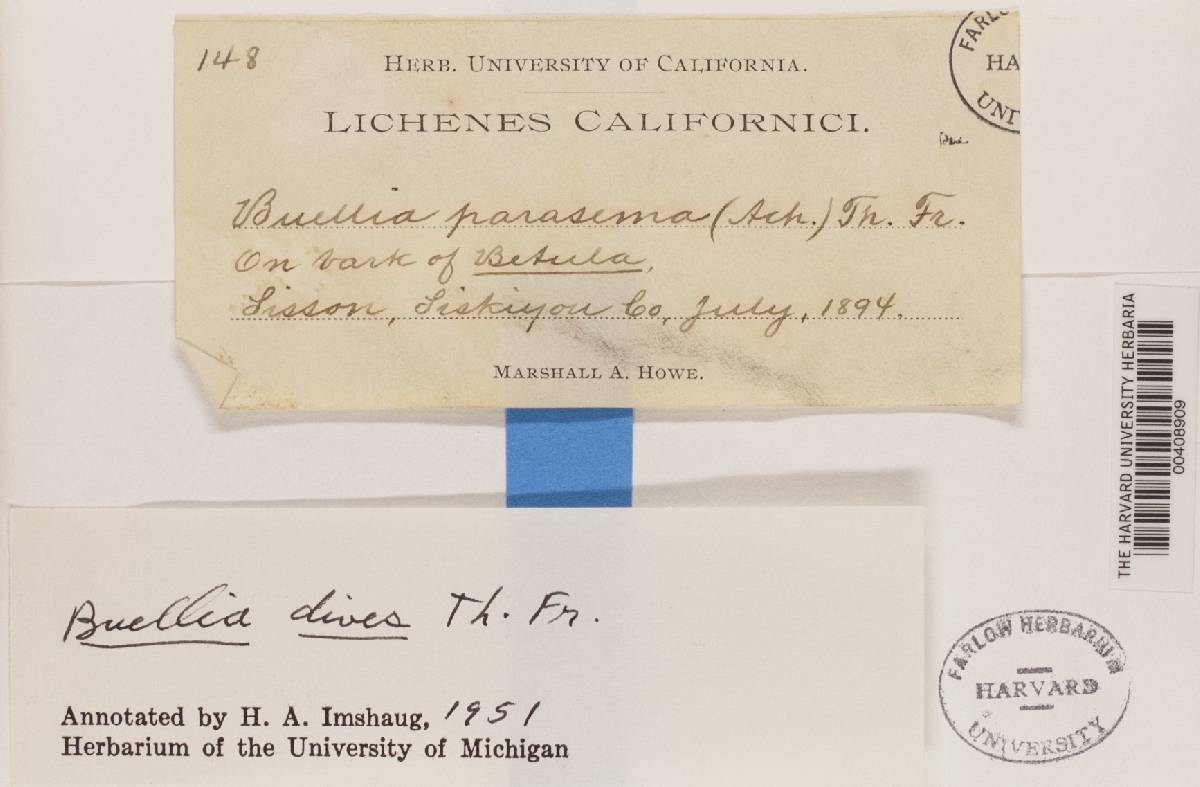 148
HERB. UNIVERSITY OF CALIFORNIA.
LICHENES CALIFORNICI.
Buellia parasema (Ach.) Th. Fr.
On bark of Betula,
Sisson, Siskiyou Co, July, 1894.
MARSHALL A. HOWE.
FARLO
HA
UNI
THE HARVARD UNIVERSITY HERBARIA
00408909
Buellia dives Th. Fr.
Annotated by H. A. Imshaug, 1951
Herbarium of the University of Michigan
FARLOW HERBARIUM
HARVARD
UNIVERSITY